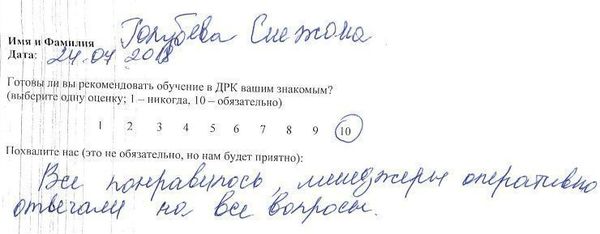 Имя и Фамилия Голубева Снежана
Дата: 24.07 2018
Готовы ли вы рекомендовать обучение в ДРК вашим знакомым?
(выберите одну оценку; 1 – никогда, 10 – обязательно)
1 2 3 4 5 6 7 8 9 10
Похвалите нас (это не обязательно, но нам будет приятно):
Все понравилось, менеджеры оперативно
отвечали на все вопросы.